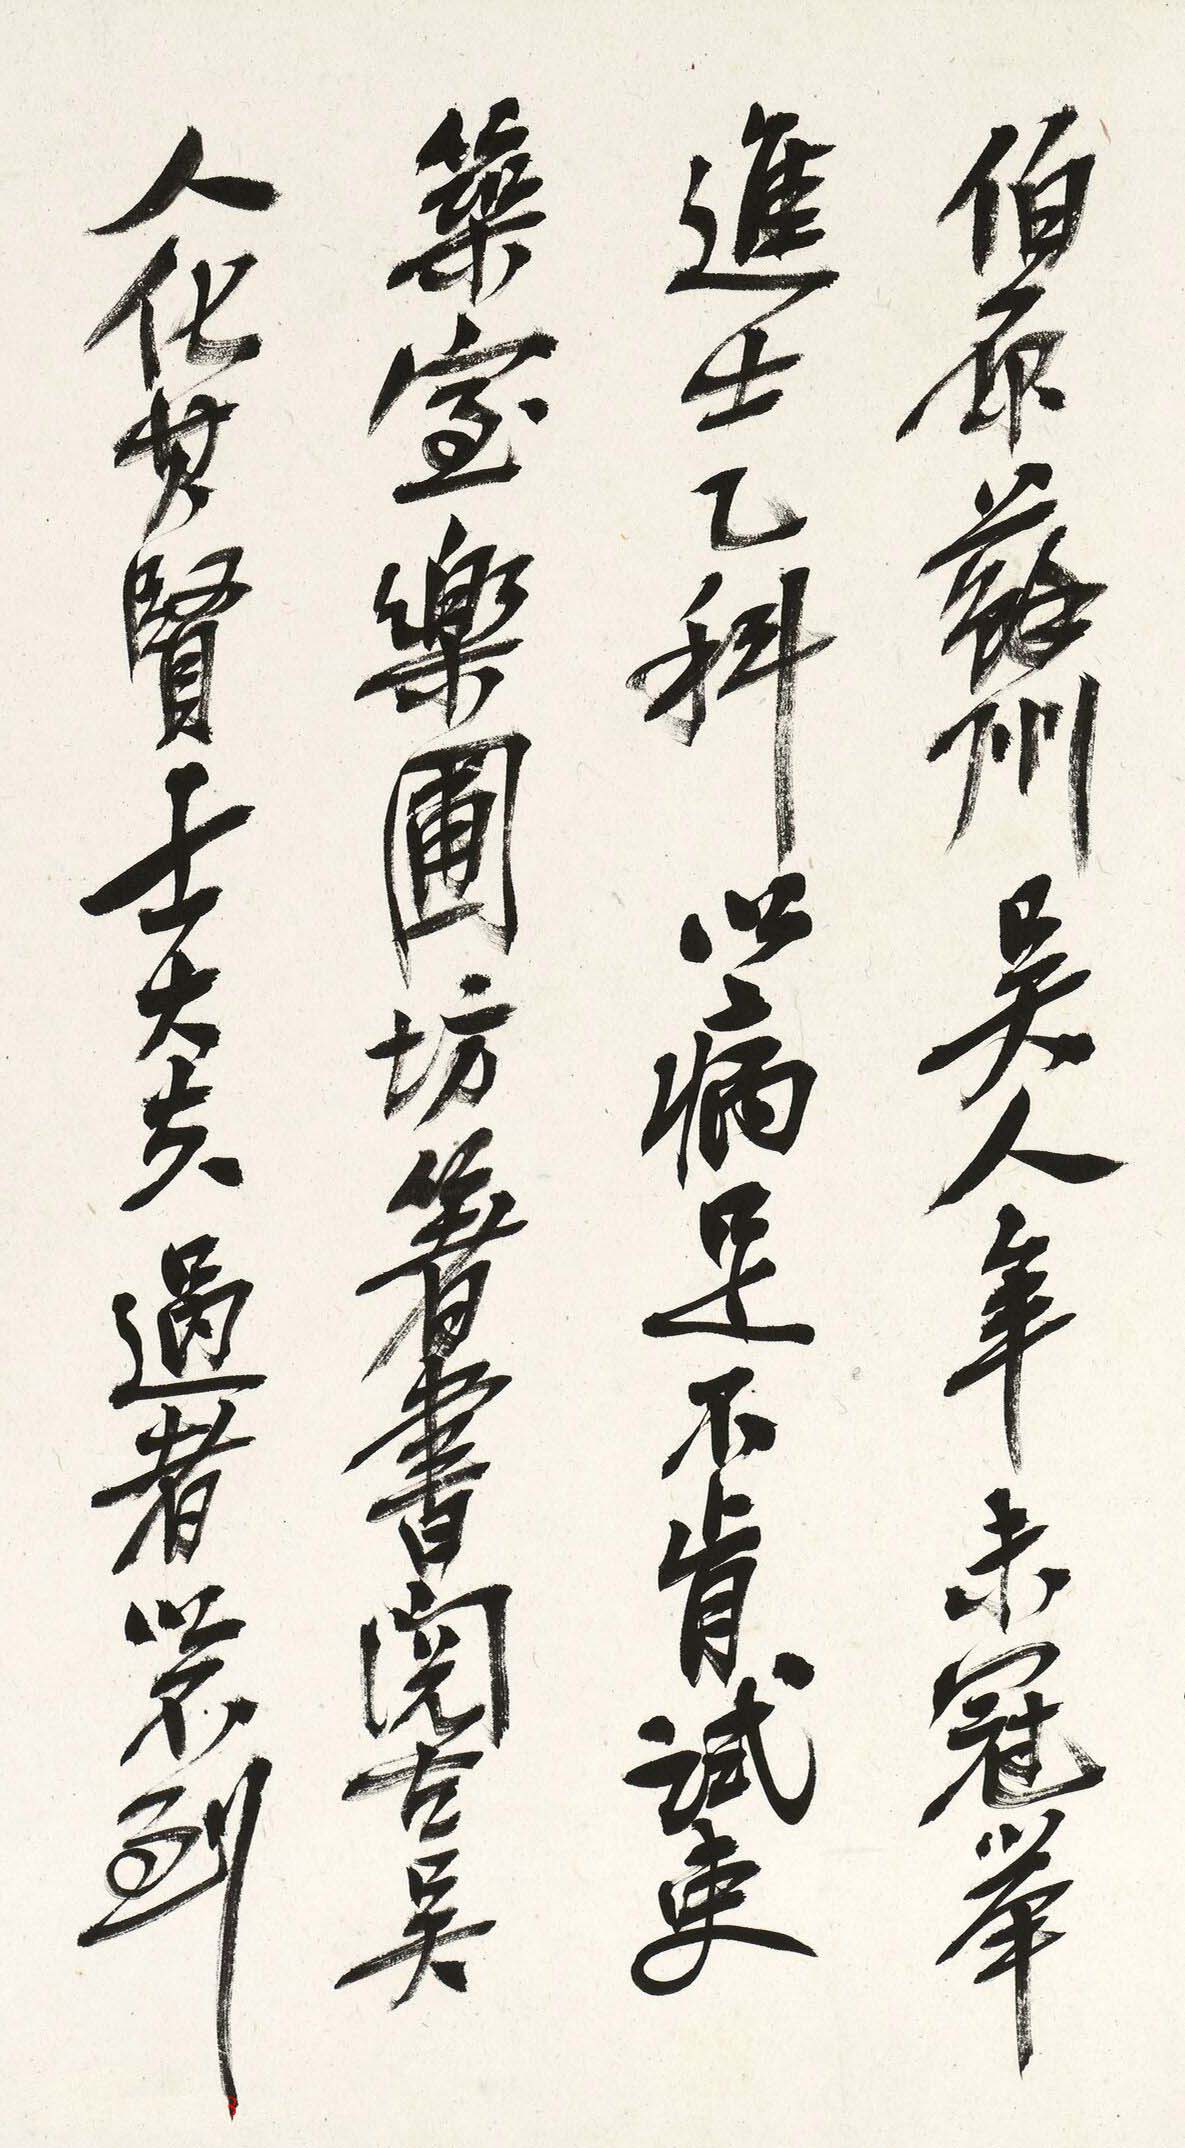 伯原蘇州吳人年未冠举
進士乙科以病足不肯試吏
築室樂圃坊著書閱古吳
人化其賢士大夫過者以不到